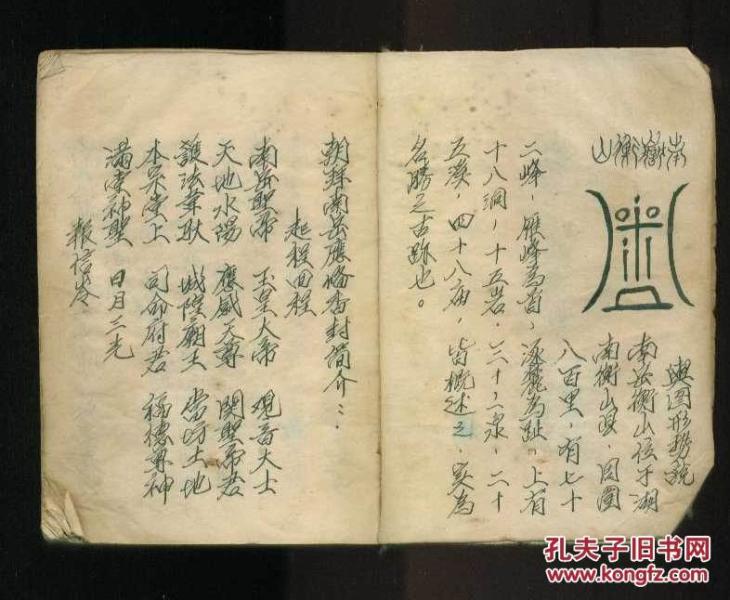 南嶽衡山
輿圖形勢說
南岳衡山位于湖
南衡山县，周圍
八百里，有七十
二峰，雁峰為首，涿麓為趾，上有
十八洞，十五岩，三十八泉，二十
五溪，四十八庙，皆概述之，实為
名勝之古跡也。
朝拜南岳應俻香封简介：
起程回程
南岳聖帝 玉皇大帝 观音大士
天地水陽 應感天尊 関聖帝君
護法韋馱 城隍廟王 當坊土地
本宗堂上 司命府君 福德尊神
滿堂神聖 日月三光
報信岺
孔夫子旧书网
www.kongfz.com